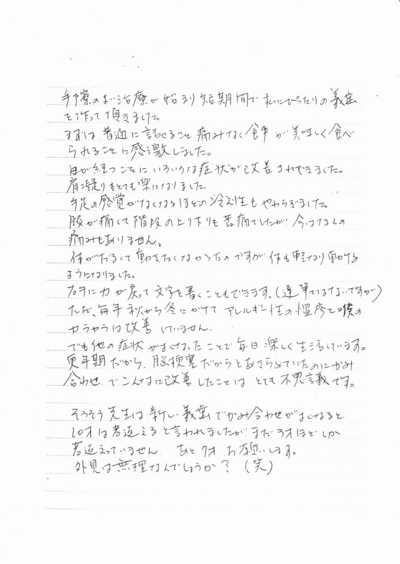 手際のよい治療が始まり短期間で私にぴったりの義歯
を作って頂きました。
まずは普通に話せること痛みなく食事が美味しく食べ
られることに感激しました。
日が経つごとにいろいろな症状が改善されてきました。
肩こりもとても楽になりました。
手足の感覚がなくなるほどの冷え性もやわらぎました。
股が痛くて階段の上り下りも苦痛でしたが今はなんの
痛みもありません。
体がだるくて動きたくなかったのですが体も軽くなり動ける
ようになりました。
右手に力が戻って文字を書くこともできます。(達筆ではないですが)
ただ、毎年秋から冬にかけてアレルギー性の湿疹と喉の
カラカラは改善していません。
でも他の症状がよくなったことで毎日楽しく生活しています。
更年期だから、脳梗塞だからとあきらめていたのにかみ
合わせでこんなに改善したことはとても不思議です。
そうそう先生は新しい義歯でかみ合わせがよくなると
10才は若返ると言われましたがまだ3才ほどしか
若返っていません。あと7才お願いします。
外見は無理なんでしょうか?(笑)